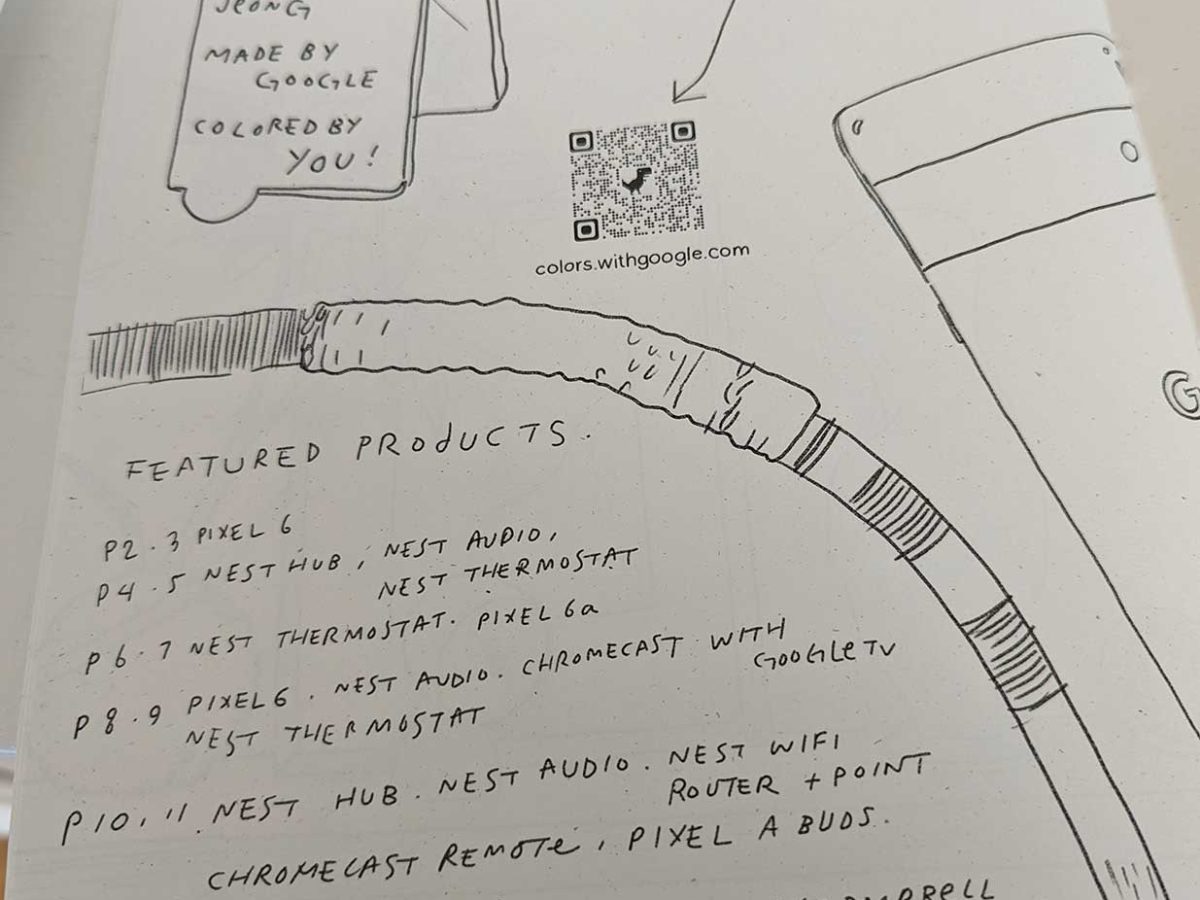 JEONG
MADE BY
GOOGLE
COLORED BY
YOU!
colors.withgoogle.com
G
FEATURED PRODUCTS.
P2.3 PIXEL 6
P4.5 NEST HUB, NEST AUDIO,
NEST THERMOSTAT
P6.7 NEST THERMOSTAT. PIXEL 6a
P8.9 PIXEL 6. NEST AUDIO. CHROMECAST WITH
GOOGLE TV
NEST THERMOSTAT
P10.11 NEST HUB. NEST AUDIO. NEST WIFI
ROUTER + POINT
CHROMECAST REMOTE, PIXEL A BUDS.